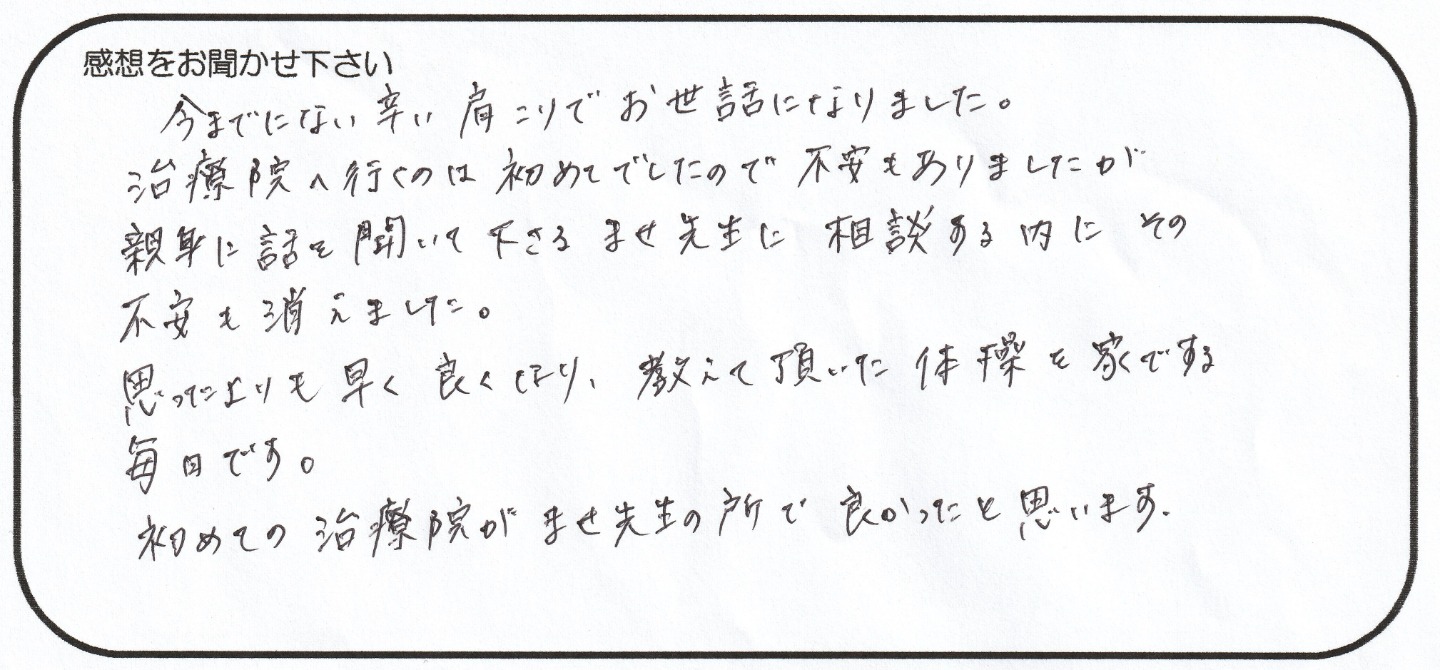 感想をお聞かせ下さい
今までにない辛い肩こりでお世話になりました。
治療院へ行くのは初めてでしたので不安もありましたが
親身に話を聞いて下さるませ先生に相談する内にその
不安も消えました。
思ったよりも早く良くなり、教えて頂いた体操を家でする
毎日です。
初めての治療院がませ先生の所で良かったと思います.